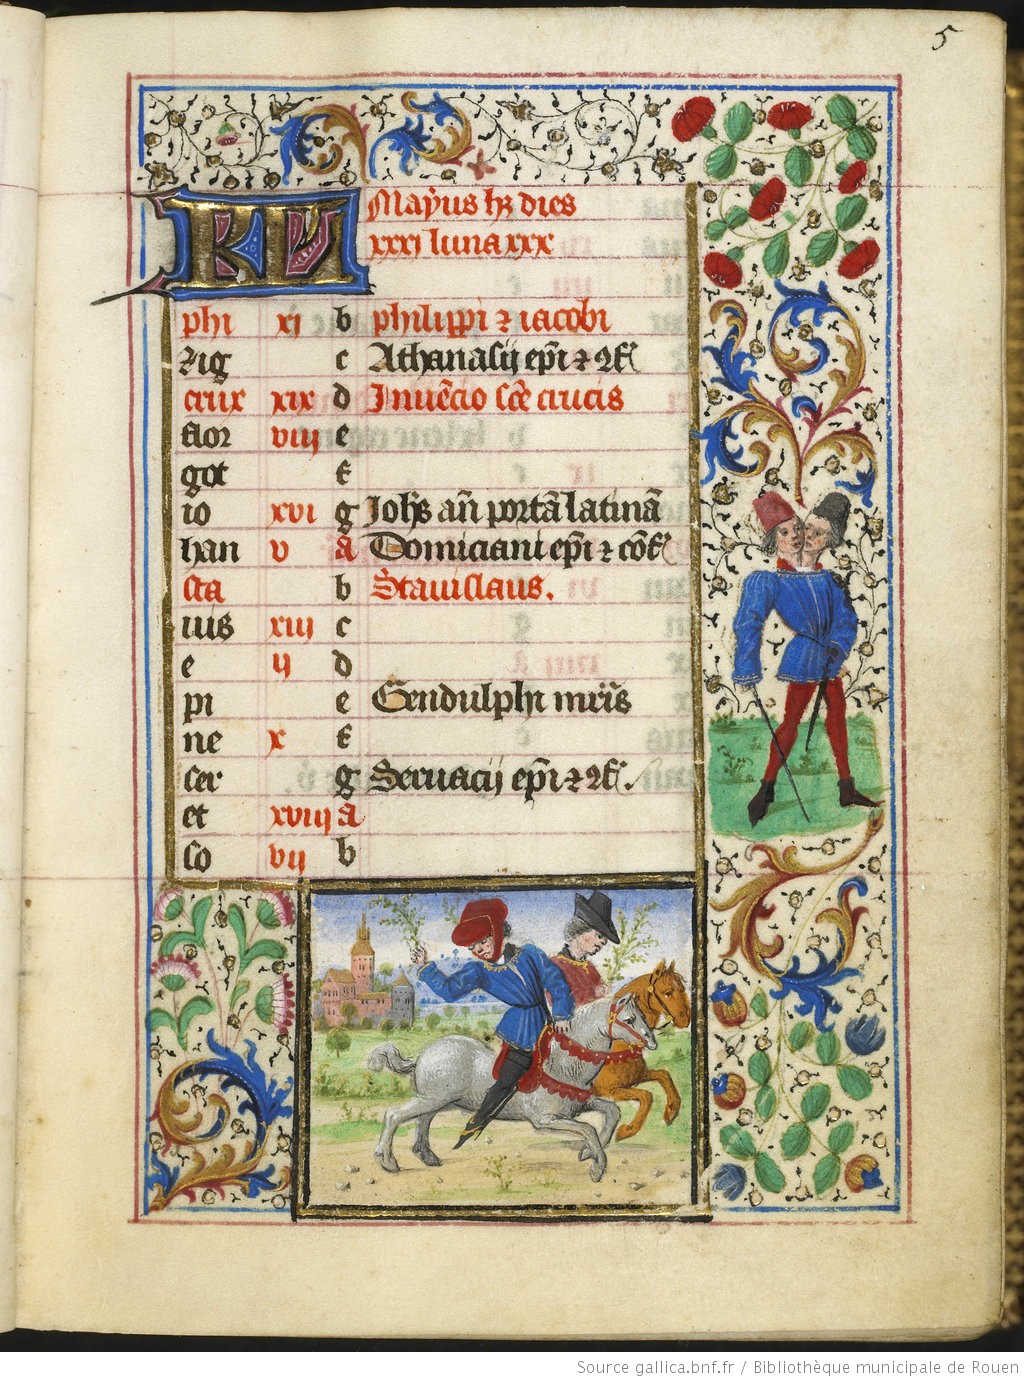 5
KL Mayus hꝫ dies
xxxi luna xxx
phi xi b philippi ⁊ iacobi
zig c Athanasij ep̄i ⁊ ꝯf̄
crux xix d Inuēcio scē crucis
flor viii e
got f
io xvi g Joh̄s an̄ portā latinā
han v A Domiciani ep̄i ⁊ cōf̄
sta b Stanislaus.
tus xiii c
e ii d
pi e Gendulphi mr̄is
ne x f
ser g Seruacij ep̄i ⁊ ꝯf̄.
et xviii A
so vii b
Source gallica.bnf.fr / Bibliothèque municipale de Rouen